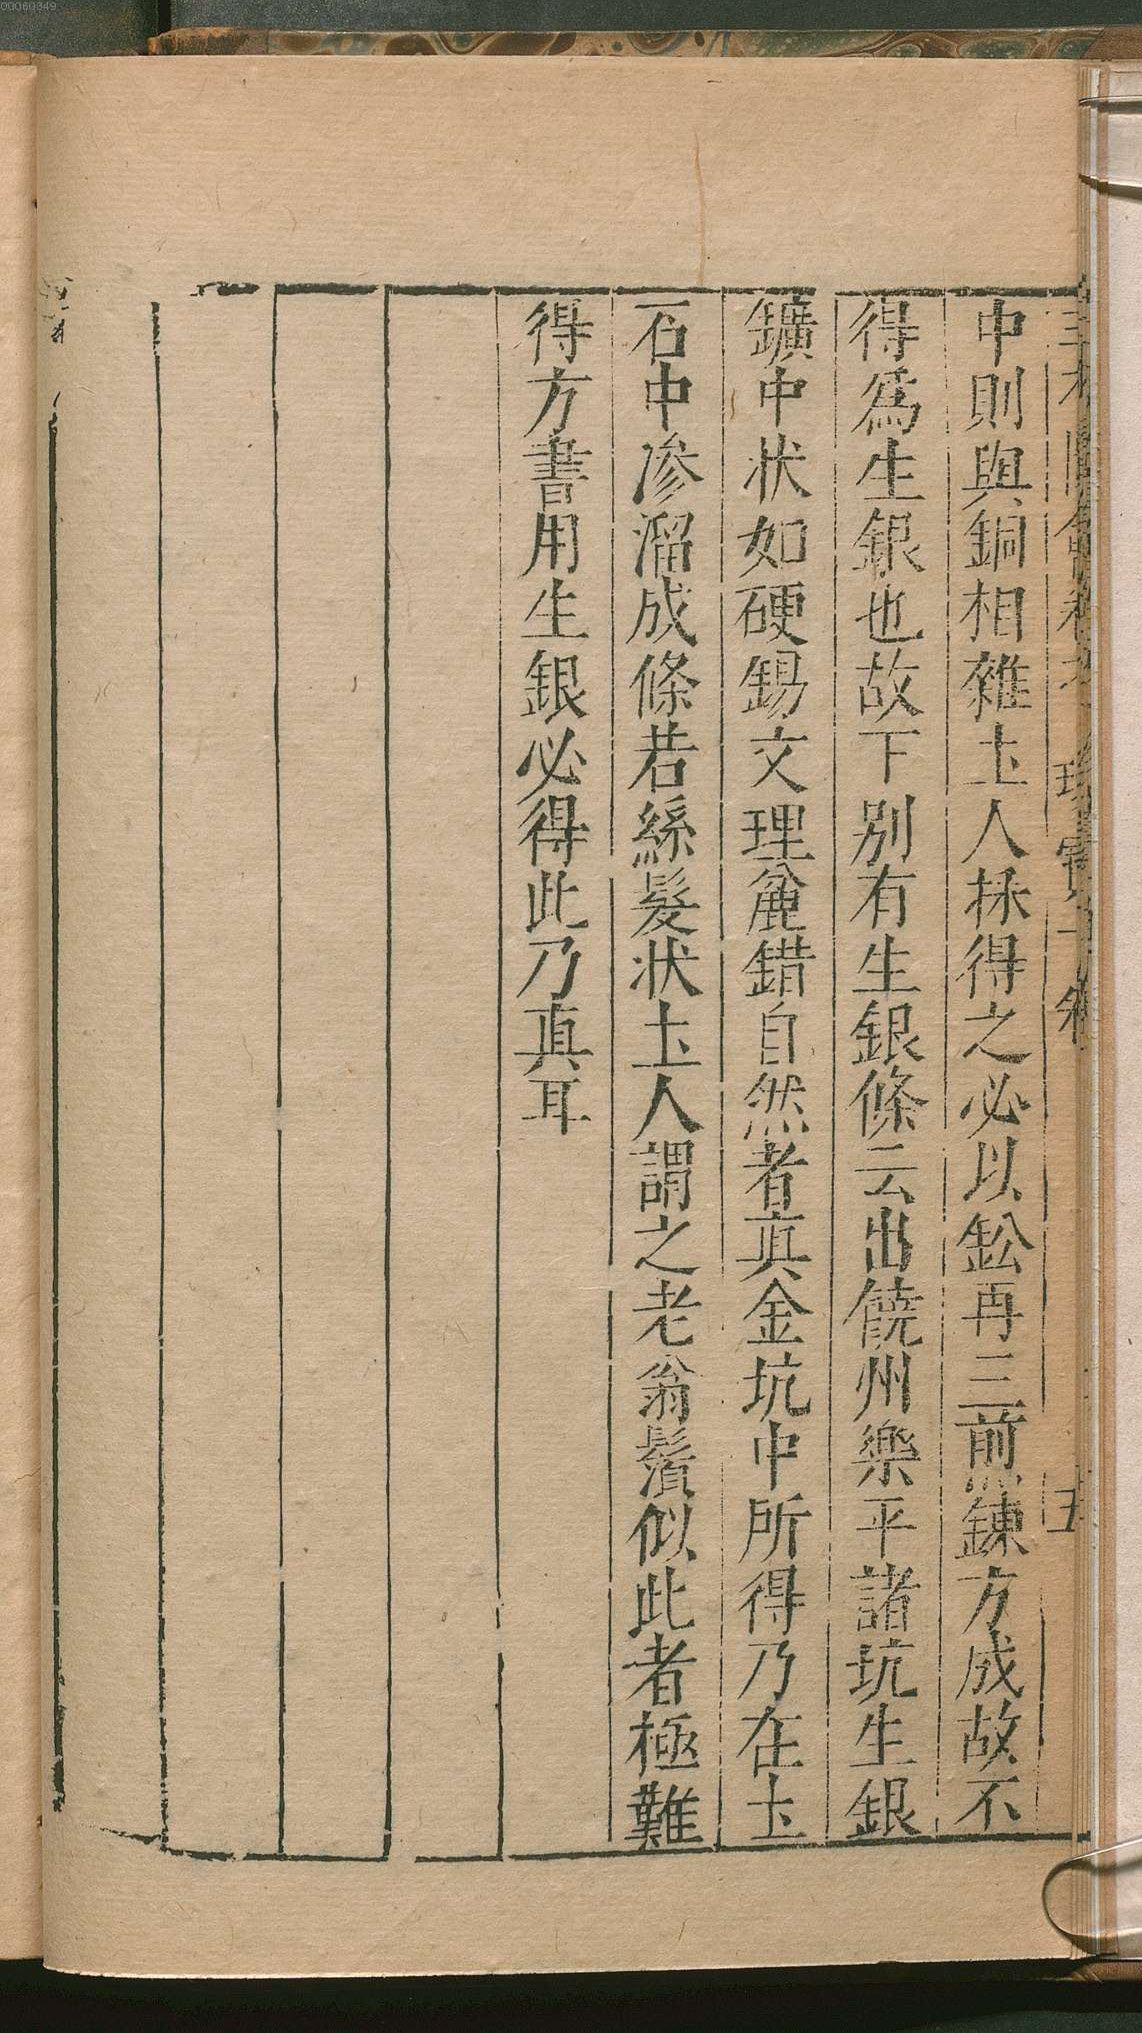 中則與銅相雜𡈽人採得之必以鈆再三煎鍊方成故不
得爲生銀也故下別有生銀條云出饒州樂平諸坑生銀
鑛中状如硬錫文理麄錯自然者真金坑中所得乃在𡈽
石中滲溜成條若絲髮状𡈽人謂之老翁鬚似此者極難
得方書用生銀必得此乃真耳
五
00060349